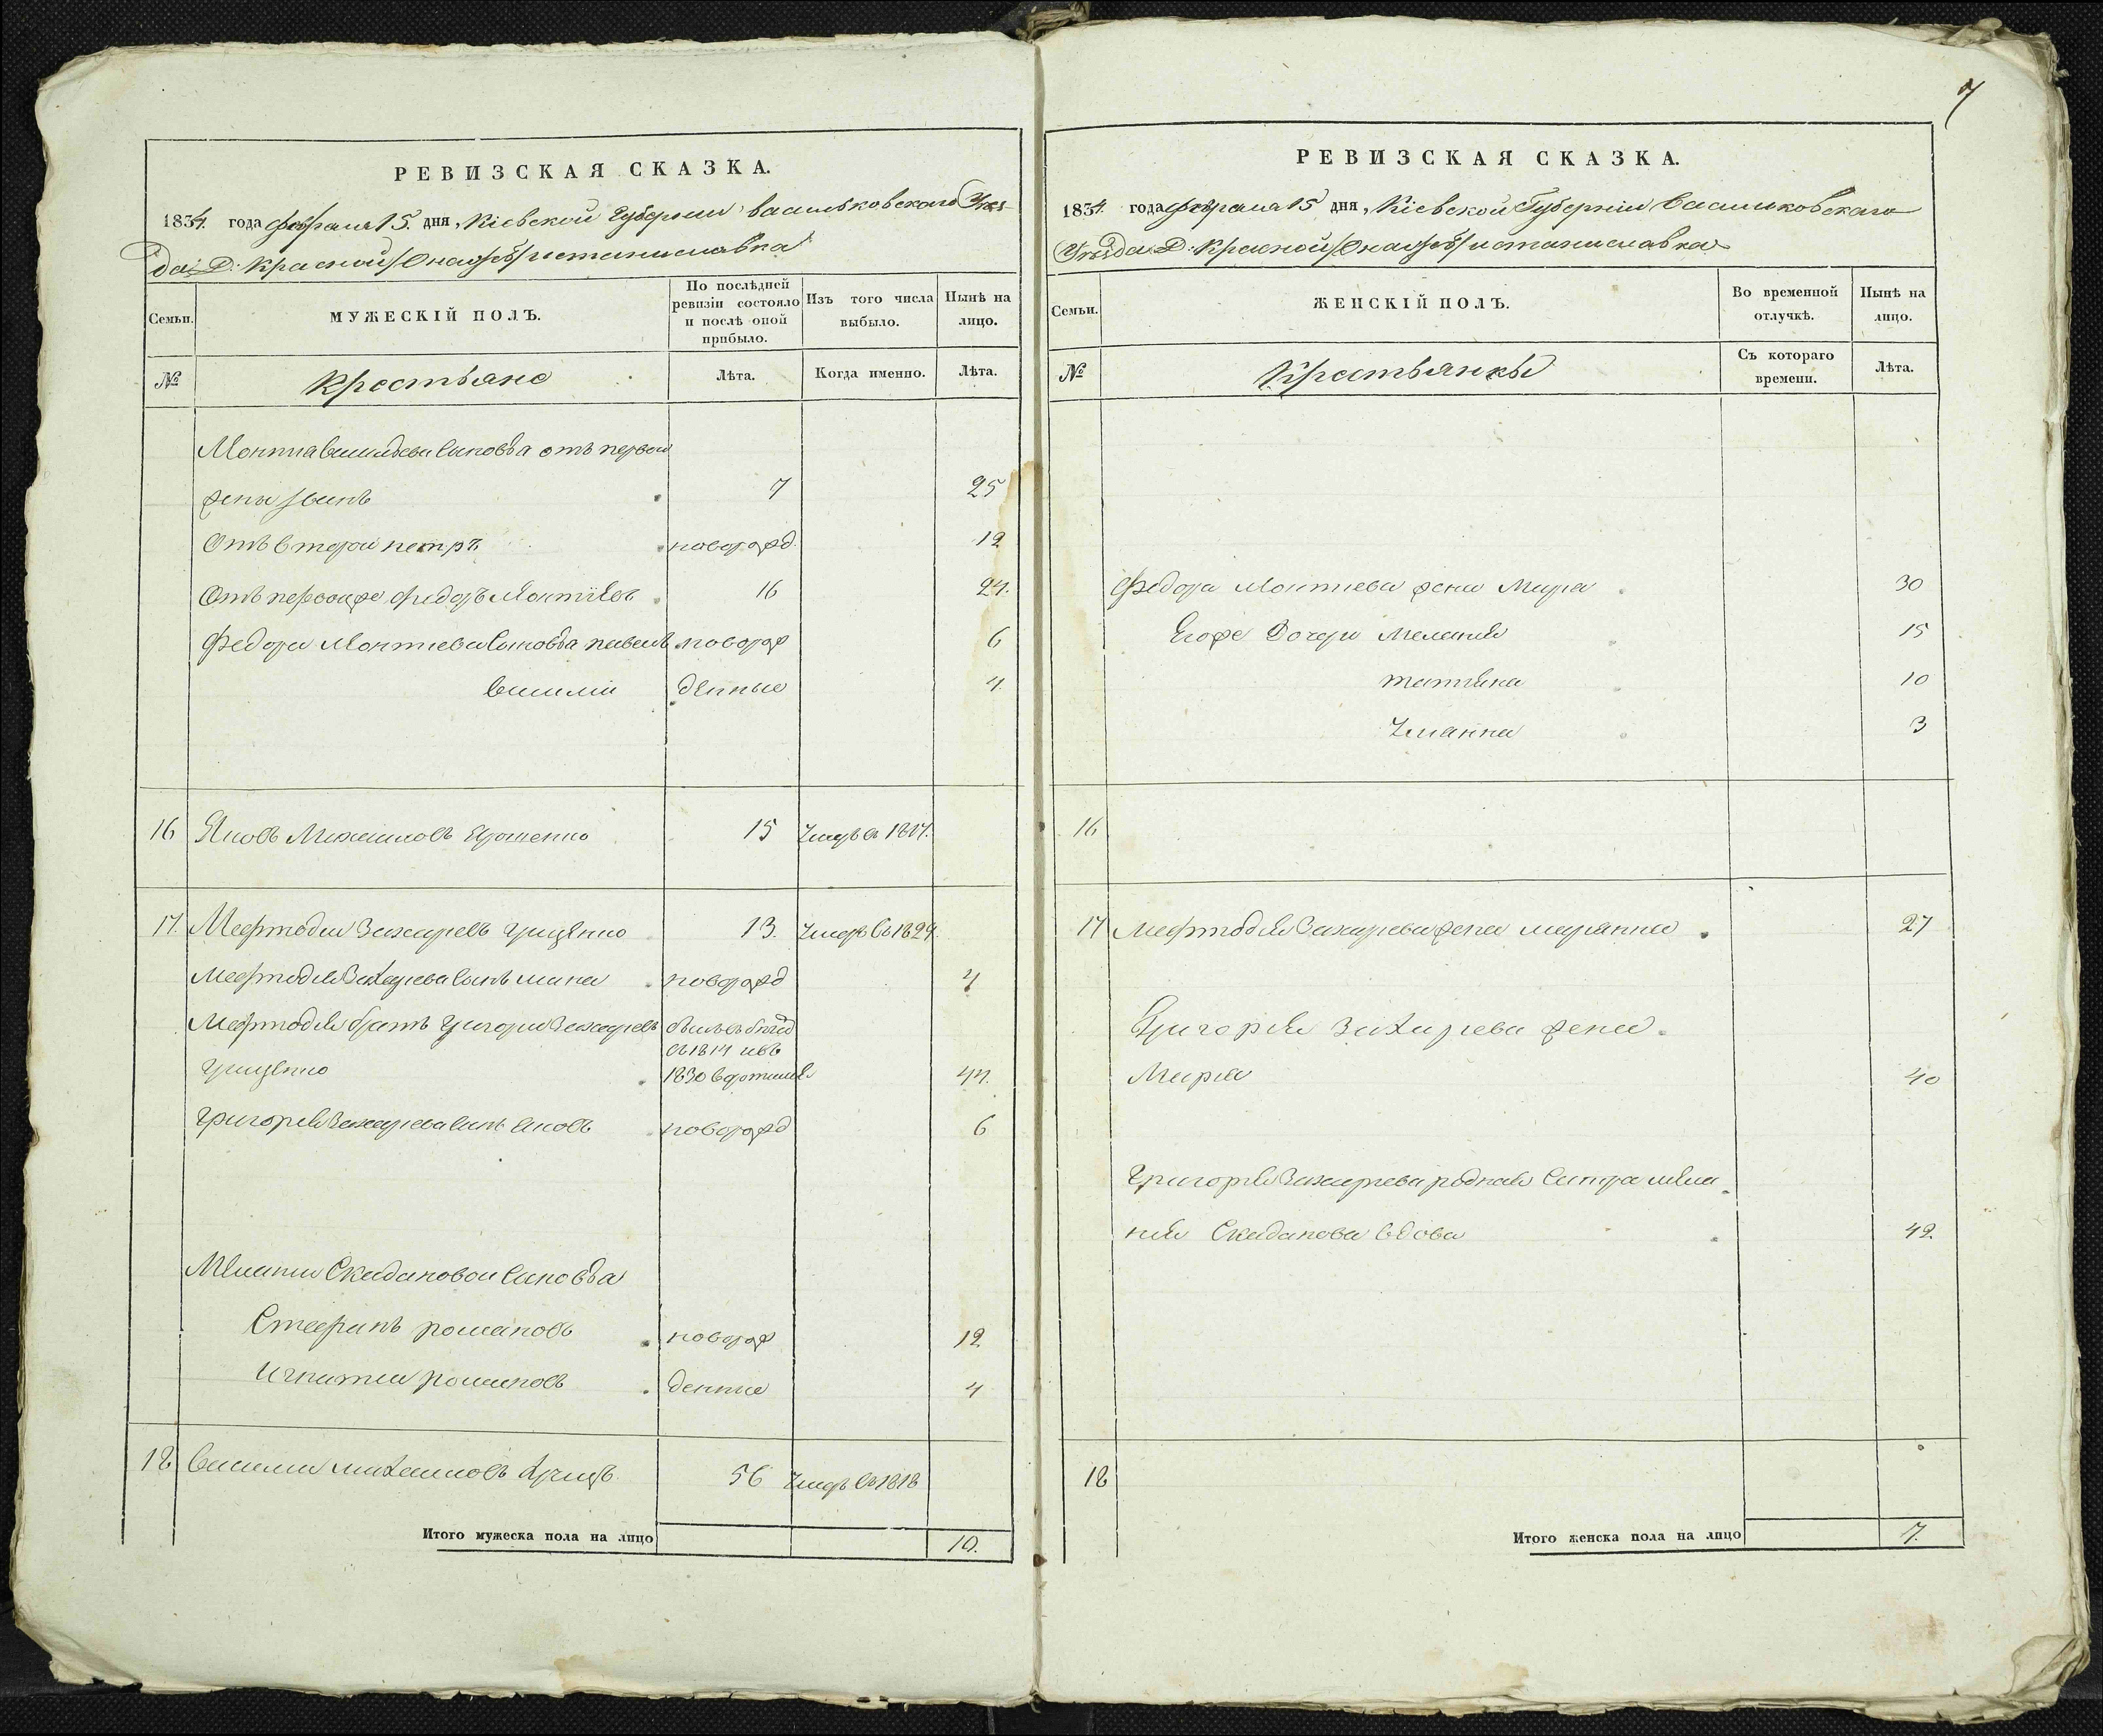 7
РЕВИЗСКАЯ СКАЗКА.
1834. года февраля 15. дня, Кіевской Губерніи Васильковского Уѣз-
да Д: Красной
Семьи.
МУЖЕСКІЙ ПОЛЪ.
По послѣдней ревизіи состояло и послѣ оной прибыло.
Изъ того числа выбыло.
Нынѣ на лицо.
№
Крестьяне
Лѣта.
Когда именно.
Лѣта.
Мокиа Васильева Сыновья отъ первой
жены Иванъ 7 25
Отъ второй петръ новорожд. 12
Отъ первой же Федоръ 16 24.
Федора Сыновья павелъ новорож 6
василій денные 4
16 Яковъ Михаиловъ Ярошенко 15 Умеръ въ 1817.
17. Мефтодій Захаріевъ Грищенко 13. Умеръ въ 1829.
Мефтодія Захаріева Сынъ новорожд 4
Мефтодія братъ Григорій Захаріевъ былъ въ бѣгахъ
съ 1814 и въ
Грищенко 1830 44.
Григорія Захаріева Сынъ Яковъ новорожд 6
Меланіи Скидановой Сыновья
Стефанъ романовъ новорож 12
Игнатій романовъ денные 4
18 Василій Михаиловъ 56 Умеръ въ 1818
Итого мужеска пола на лицо 10.
РЕВИЗСКАЯ СКАЗКА.
1834. года февраля 15 дня, Кіевской Губерніи Васильковскаго
Уѣзда Д: Красной
Семьи.
ЖЕНСКІЙ ПОЛЪ.
Во временной отлучкѣ.
Нынѣ на лицо.
№
Крестьянки
Съ котораго времени.
Лѣта.
Федора жена Марія 30
Егоже Дочери Меланія 15
татіяна 10
Уліанна 3
16
17 Мефтодія Захаріева жена маріанна 27
Григорія Захаріева жена
Марія 40
Григорія Захаріева родная Сестра мела
нія Скиданова вдова 42
18
Итого женска пола на лицо 7.